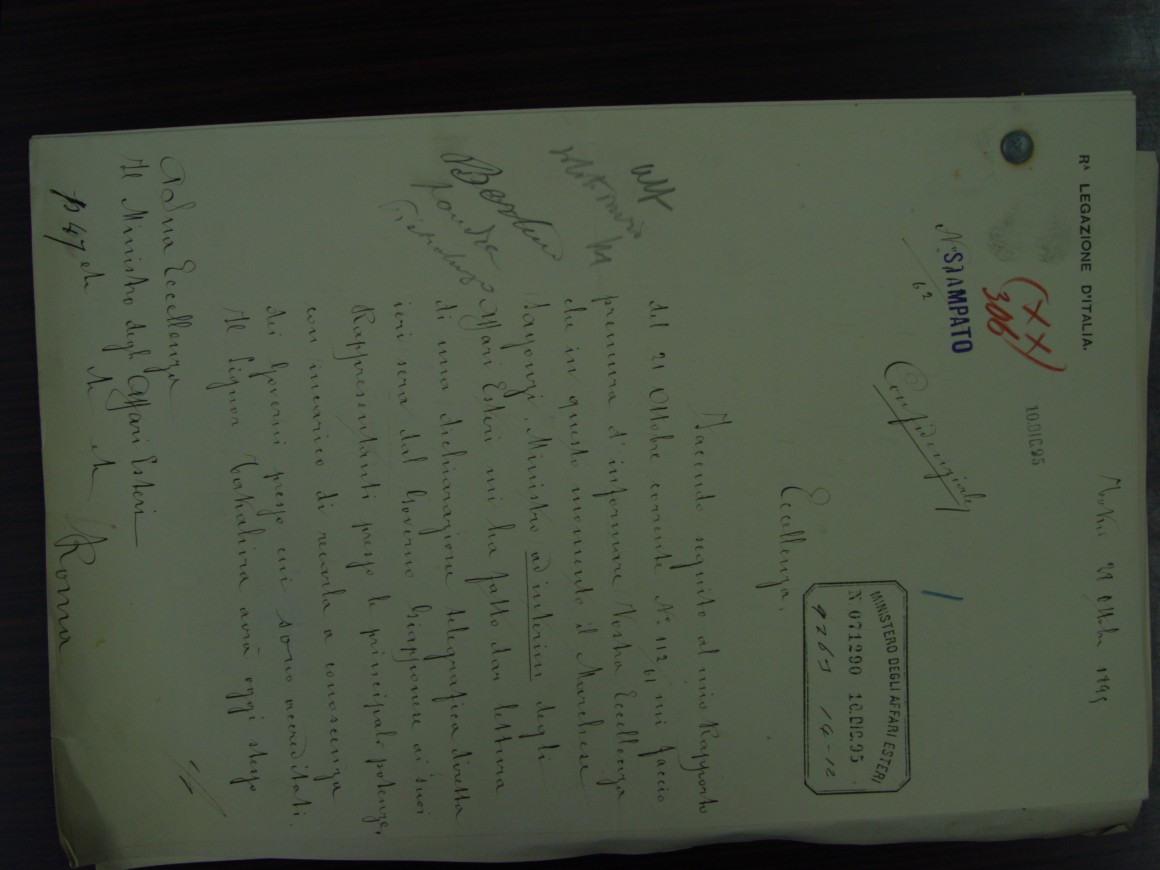 Rᴬ LEGAZIONE D'ITALIA.
Tokio 29 Ottobre 1895
10.DIC.95
(XX)
306
N. STAMPATO
62
Confidenziale
MINISTERO DEGLI AFFARI ESTERI
N 071290 10.DIC.95
Eccellenza,
Facendo seguito al mio Rapporto
del 21 Ottobre corrente Nº 112/61 mi faccio
premura d'informare Vostra Eccellenza
che in questo momento il Marchese
Sayonzi, Ministro ad interim degli
Affari Esteri mi ha fatto dar lettura
di una dichiarazione telegrafica diretta
ieri sera dal Governo Giapponese ai suoi
Rappresentanti presso le principali potenze,
con incarico di recarla a conoscenza
dei Governi presso cui sono accreditati.
Il Signor avrà oggi stesso
Berlino
Londra
Pietroburgo
A Sua Eccellenza
Il Ministro degli Affari Esteri
Roma